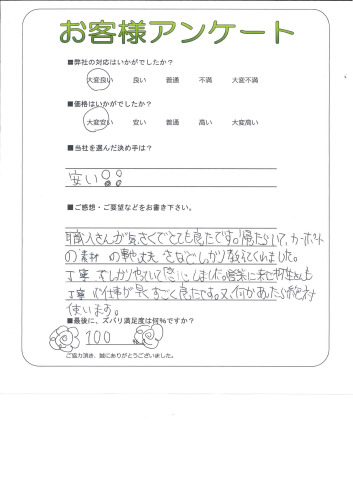 お客様アンケート
■弊社の対応はいかがでしたか?
大変良い 良い 普通 不満 大変不満
■価格はいかがでしたか?
大変安い 安い 普通 高い 大変高い
■当社を選んだ決め手は?
安い!!
■ご感想・ご要望などをお書き下さい。
職人さんが気さくでとても良たです。
の素材の事や丈夫さなどしっかり教えてくれました。
丁寧でしっかりやっていて
丁寧で仕事が早くすごく良たです。又、何かあったら絶対
使います。
■最後に、ズバリ満足度は何%ですか?
100 %
ご協力頂き、誠にありがとうございました。